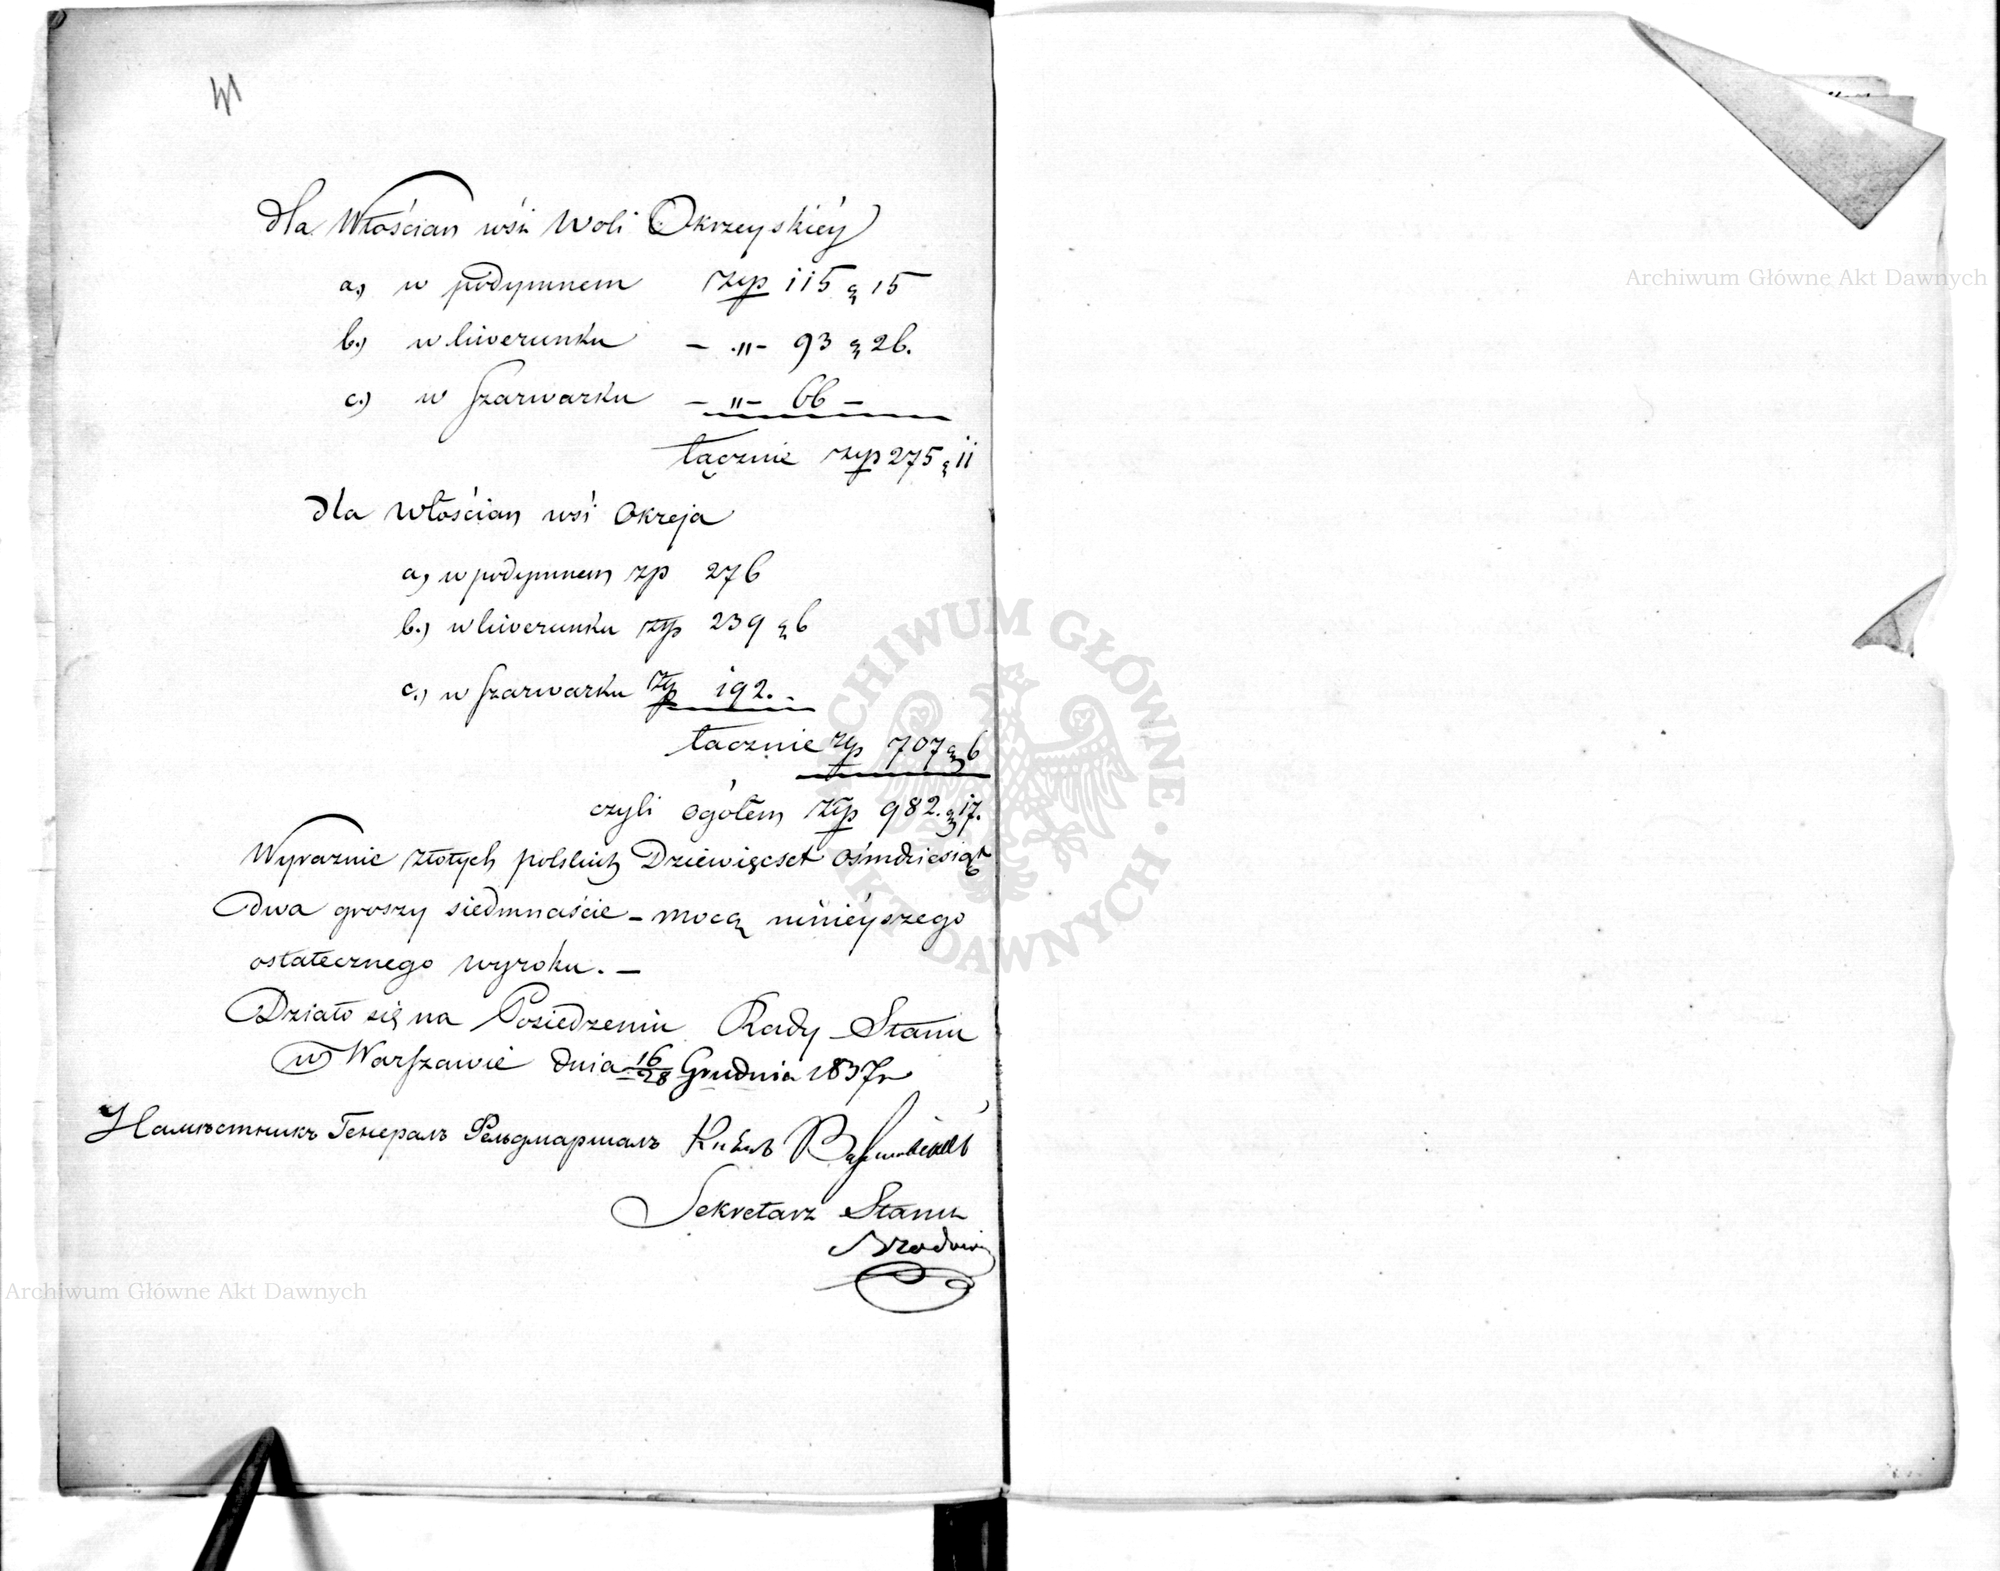 41
dla Włościan wśi Woli Okrzeyskiéy
a) w podymnem złp 115 g 15
b.) w liwerunku – " – 93 g 26.
c.) w szarwarku – " – 66 –
łącznie złp 275 g 11
dla Włościan wsi Okreja
a) w podymnem zp 276
b.) w liwerunku złp 239 g 6
c.) w szarwarku złp 192. -
łacznie złp 707 g 6
czyli ogółem złp 982. g 17.
Wyraznie złotych polskich Dziewięcset ośmdziesiąt
dwa groszy siedmnaście – mocą ninieyszego
ostatecznego wyroku. –
Działo się na Posiedzeniu Rady Stanu
w Warszawie dnia 16/28 Grudnia 1837 r
Намѣстникъ Генералъ Фельдмаршалъ
Sekretarz Stanu
Archiwum Główne Akt Dawnych
Archiwum Główne Akt Dawnych
ARCHIWUM GŁÓWNE AKT DAWNYCH